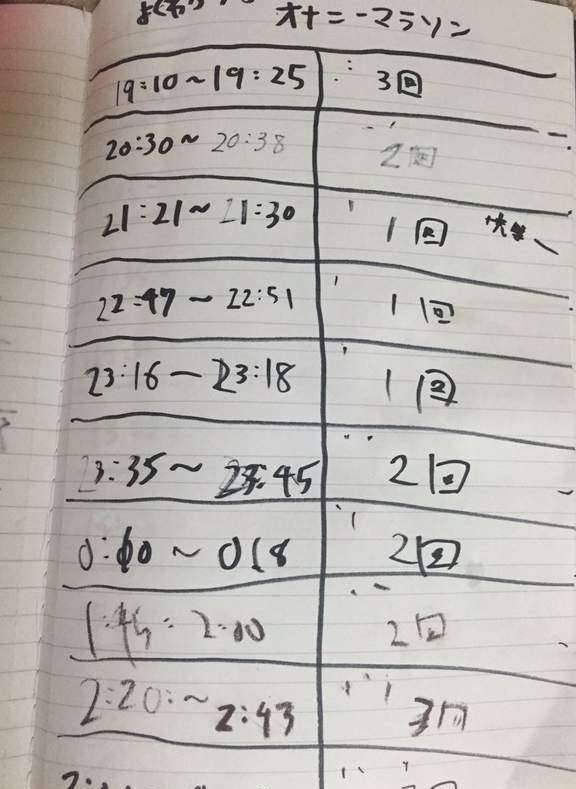 オナニーマラソン
19:10～19:25 3回
20:30～20:38 2回
21:21～21:30 1回
22:47～22:51 1回
23:16－23:18 1回
23:35～23:45 2回
0:10～018 2回
1:45:2:00 2回
2:20:～2:43 3回